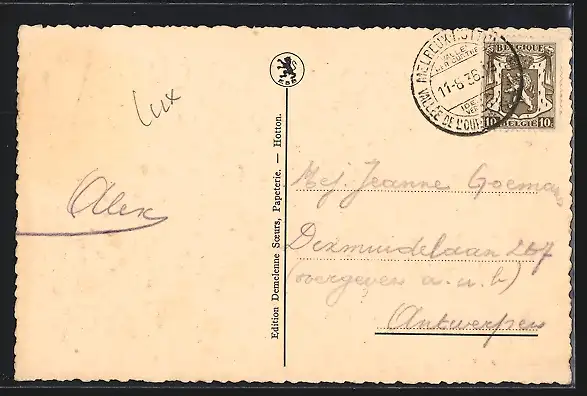 Lux
Alex
Edition Demelenne Sœurs, Papeterie. — Hotton.
E&B
MELREUX-HOTTON
11-8 36
VALLÉE DE L'OURTHE
BELGIQUE
10c BELGIË 10c
Mej. Jeanne Goemans
Dixmuidelaan 267
(overgeven a.u.b)
Antwerpen